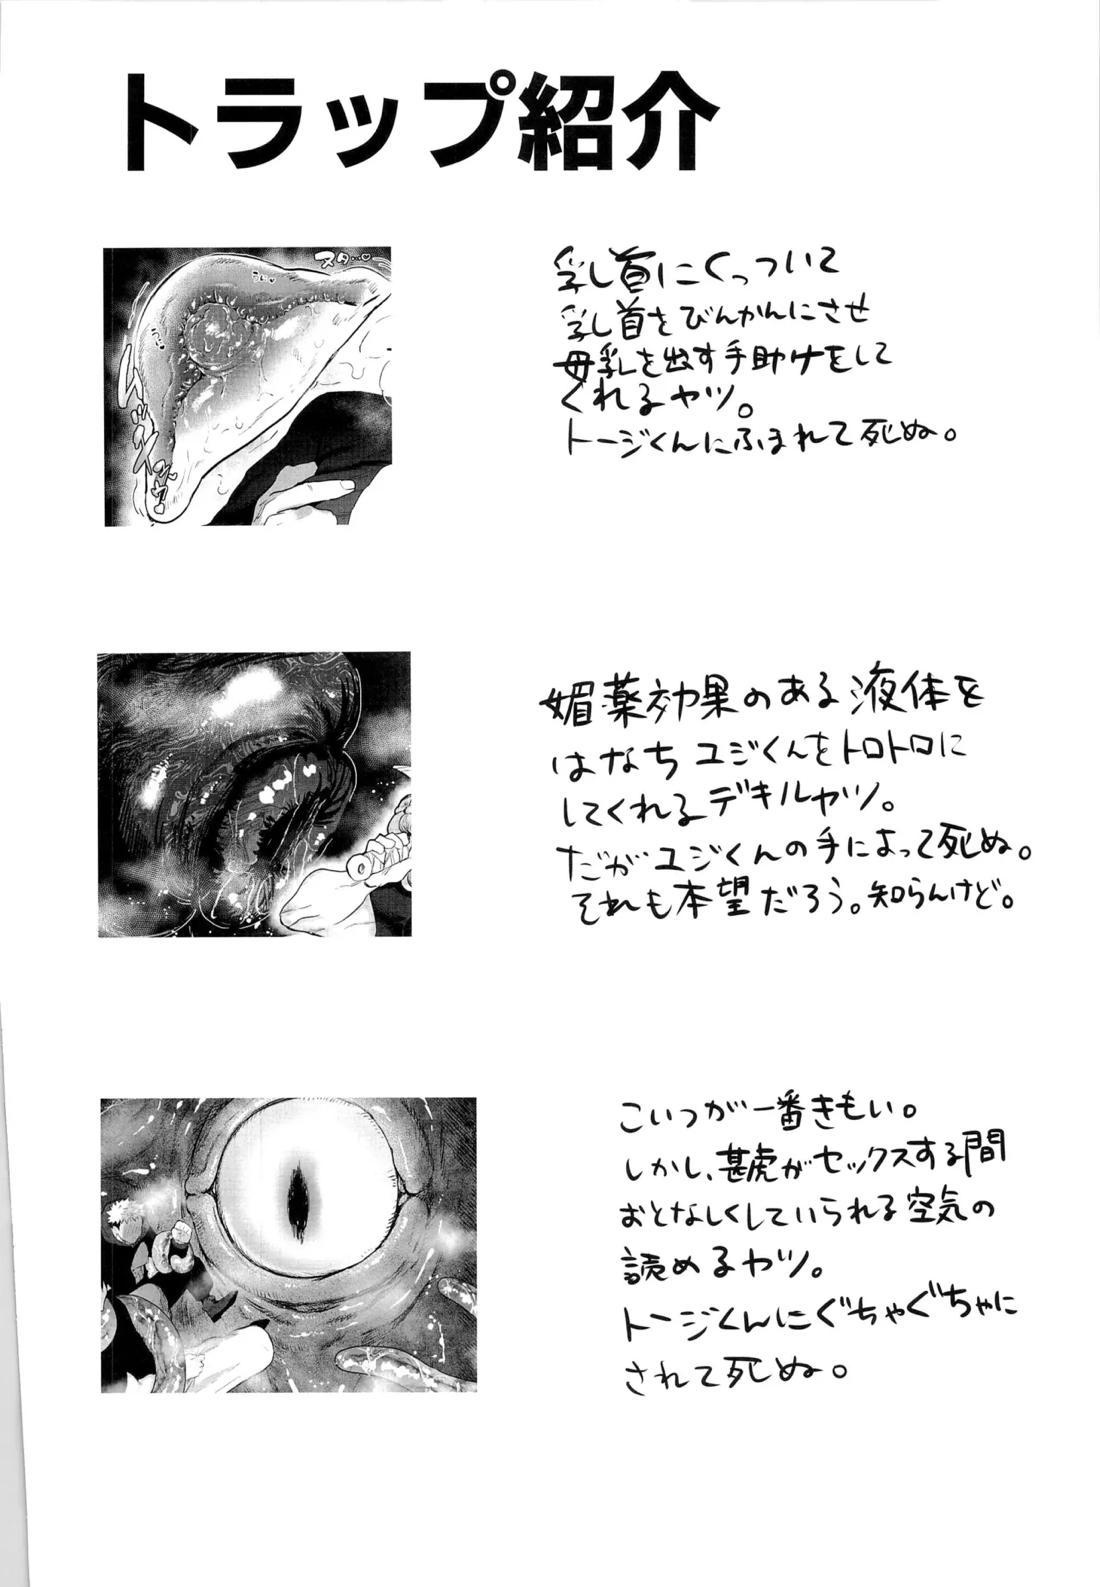 トラップ紹介
乳し首にくっついて
乳し首をびんかんにさせ
母乳を出す手助ケをして
くれるヤツ。
トージくんにふまれて死ぬ。
媚薬効果のある液体を
はなちユジくんをトロトロに
してくれるデキルヤツ。
だがユジくんの手によって死ぬ。
それも本望だろう。知らんけど。
こいつが一番きもい。
しかし、甚虎がセックスする間
おとなしくしていられる空気の
読めるヤツ。
トージくんにぐちゃぐちゃに
されて死ぬ。